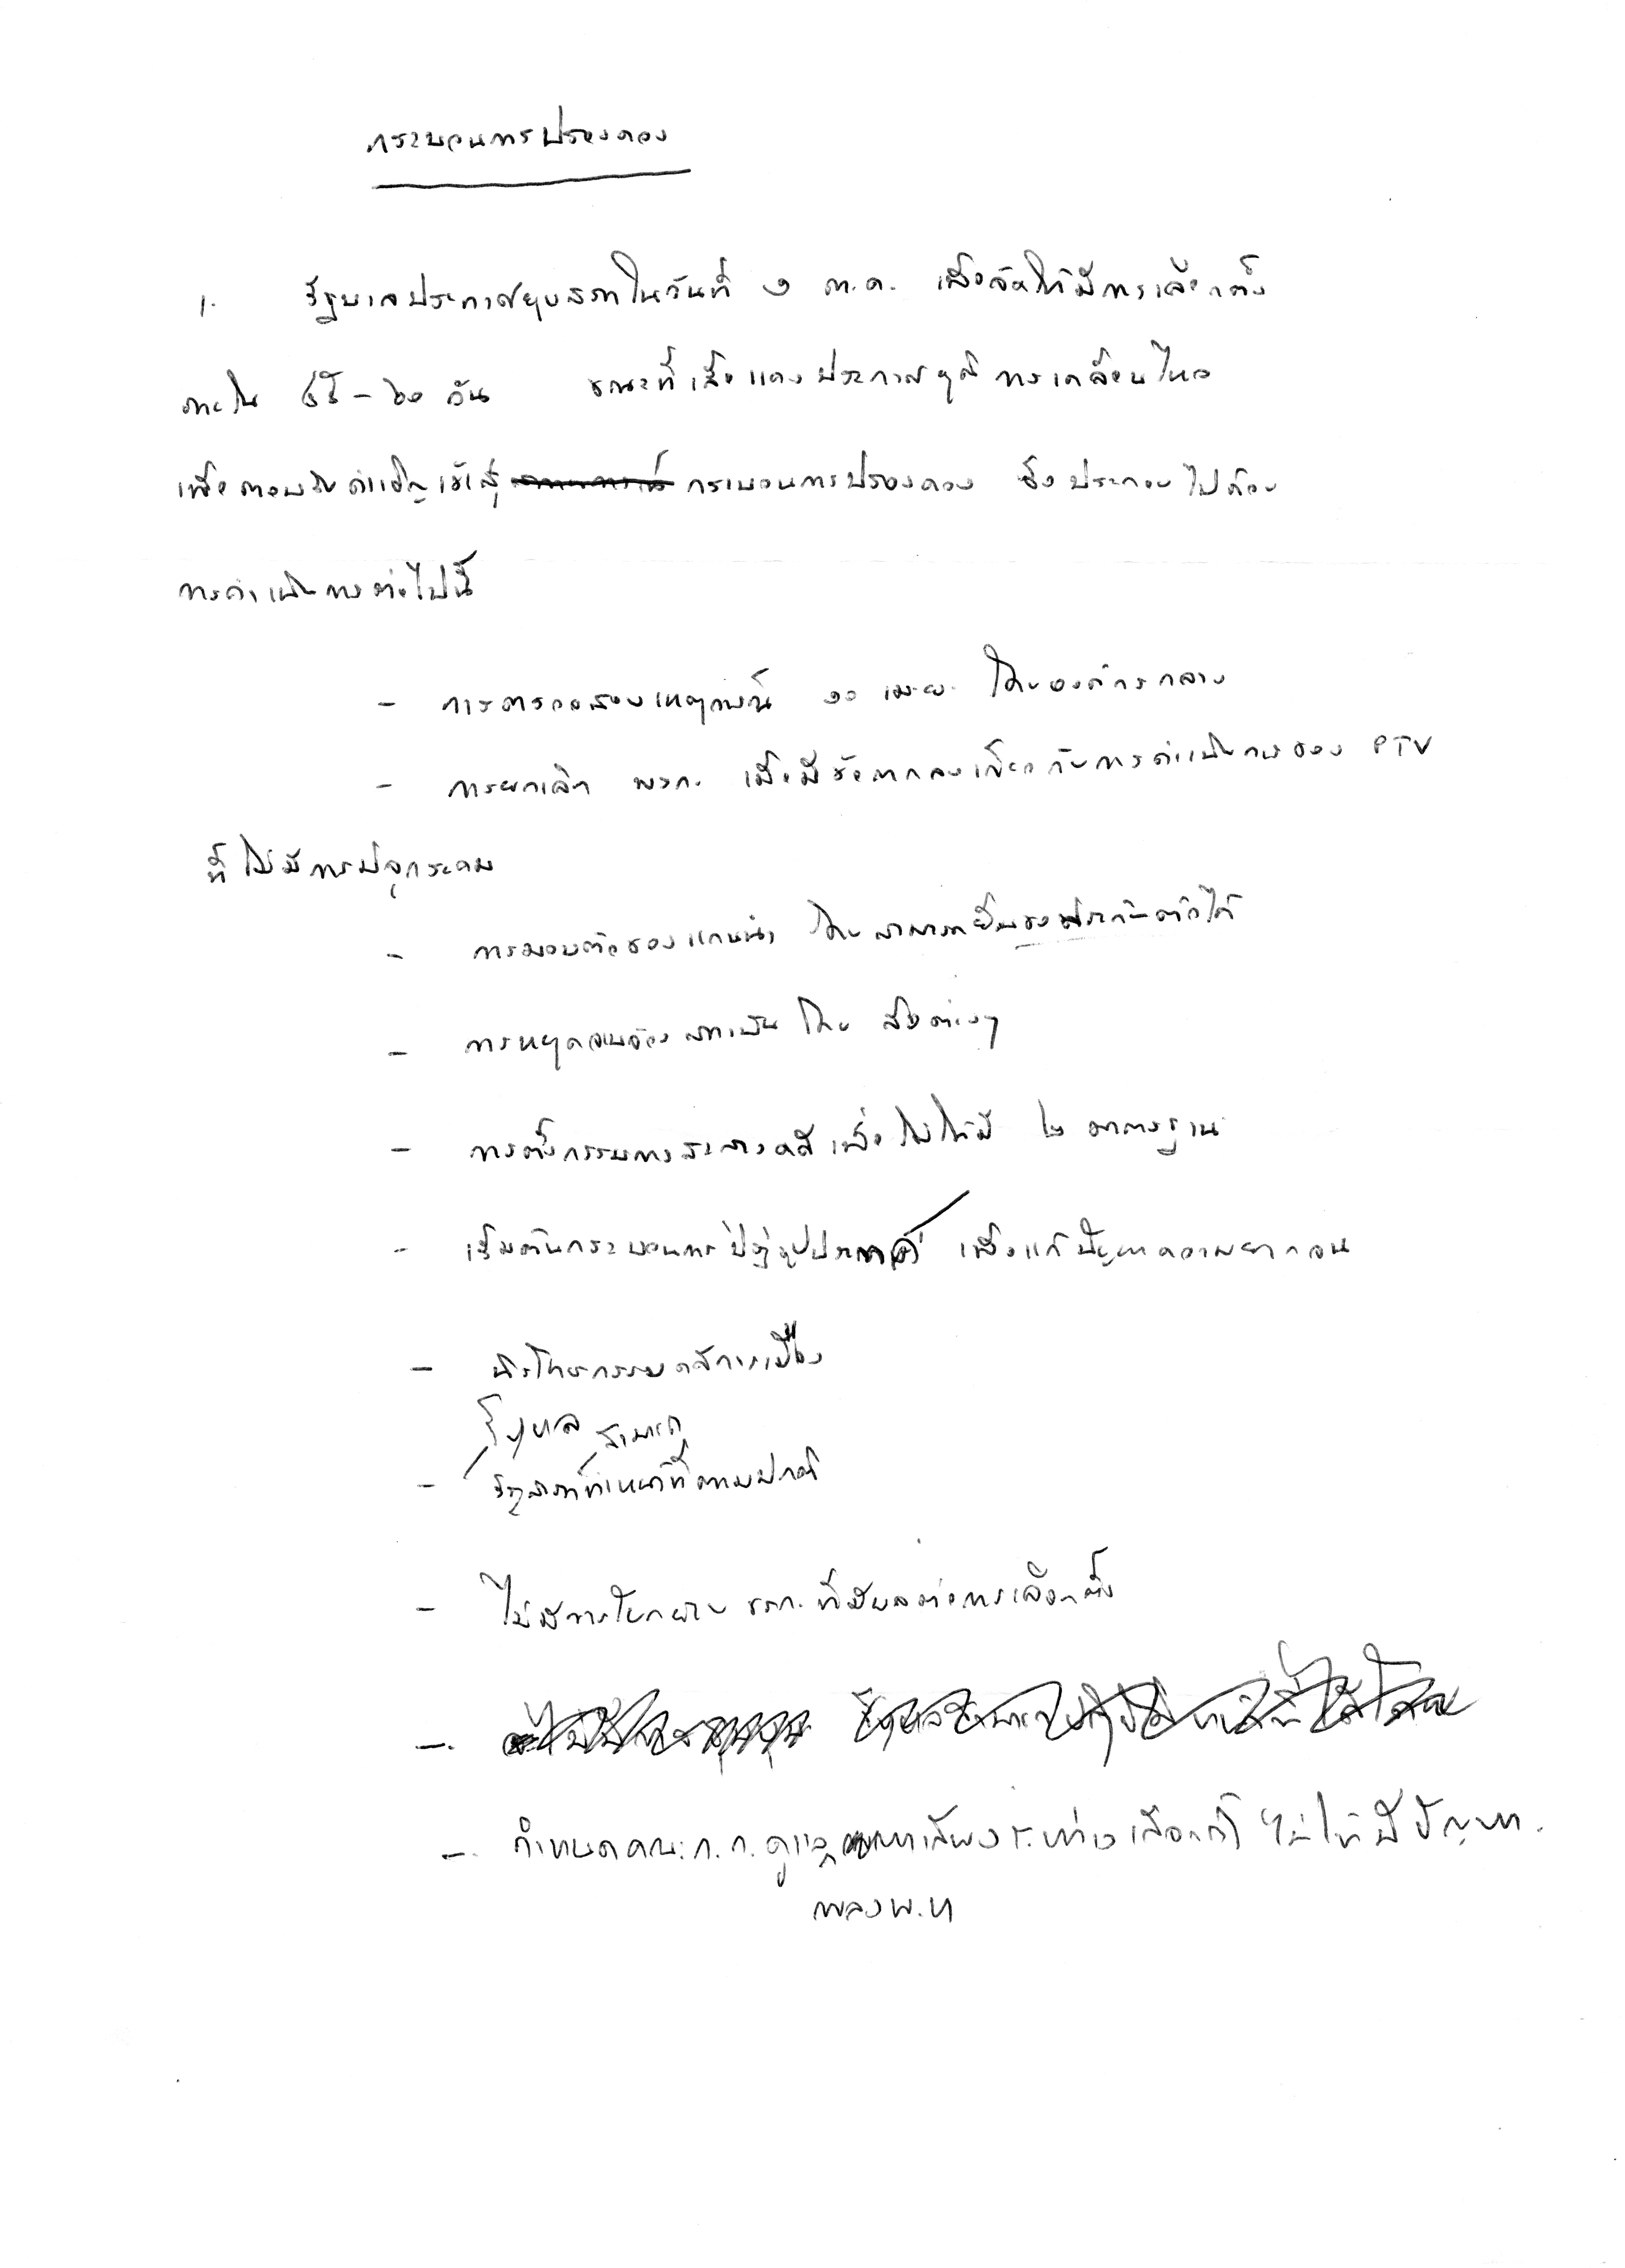 กระบวนการปรองดอง
1. รัฐบาลประกาศยุบสภาในวันที่ ๑ ต.ค. เพื่อจัดให้มีการเลือกตั้ง
ภายใน ๔๕ - ๖๐ วัน ขณะที่เสื้อแดงประกาศยุติการเคลื่อนไหว
เพื่อตอบรับคำเชิญเข้าสู่ กระบวนการปรองดอง ซึ่งประกอบไปด้วย
การดำเนินการต่อไปนี้
- การตรวจสอบเหตุการณ์ ๑๐ เม.ย. โดยองค์กรกลาง
- การยกเลิก พรก. เมื่อมีข้อตกลงเกี่ยวกับการดำเนินการของ PTV
ที่ไม่มีการปลุกระดม
- การมอบตัวของแกนนำ โดยสามารถยื่นขอประกันตัวได้
- การหยุดจาบจ้วงสถาบัน โดย สื่อต่างๆ
- การตั้งกรรมการสะสางคดี เพื่อไม่ให้มี ๒ มาตรฐาน
- เริ่มต้นกระบวนการปฏิรูปประเทศ เพื่อแก้ปัญหาความยากจน
- นิรโทษกรรมคดีการเมือง
รัฐบาล สามารถ
- รัฐสภาทำหน้าที่ตามปกติ
- ไม่มีการโยกย้าย ขรก. ที่มีผลต่อการเลือกตั้ง
-
- กำหนดคณะ ก.ก. ดูแล หาเสียงระหว่างเลือกตั้ง ไม่ให้มีปัญหา.